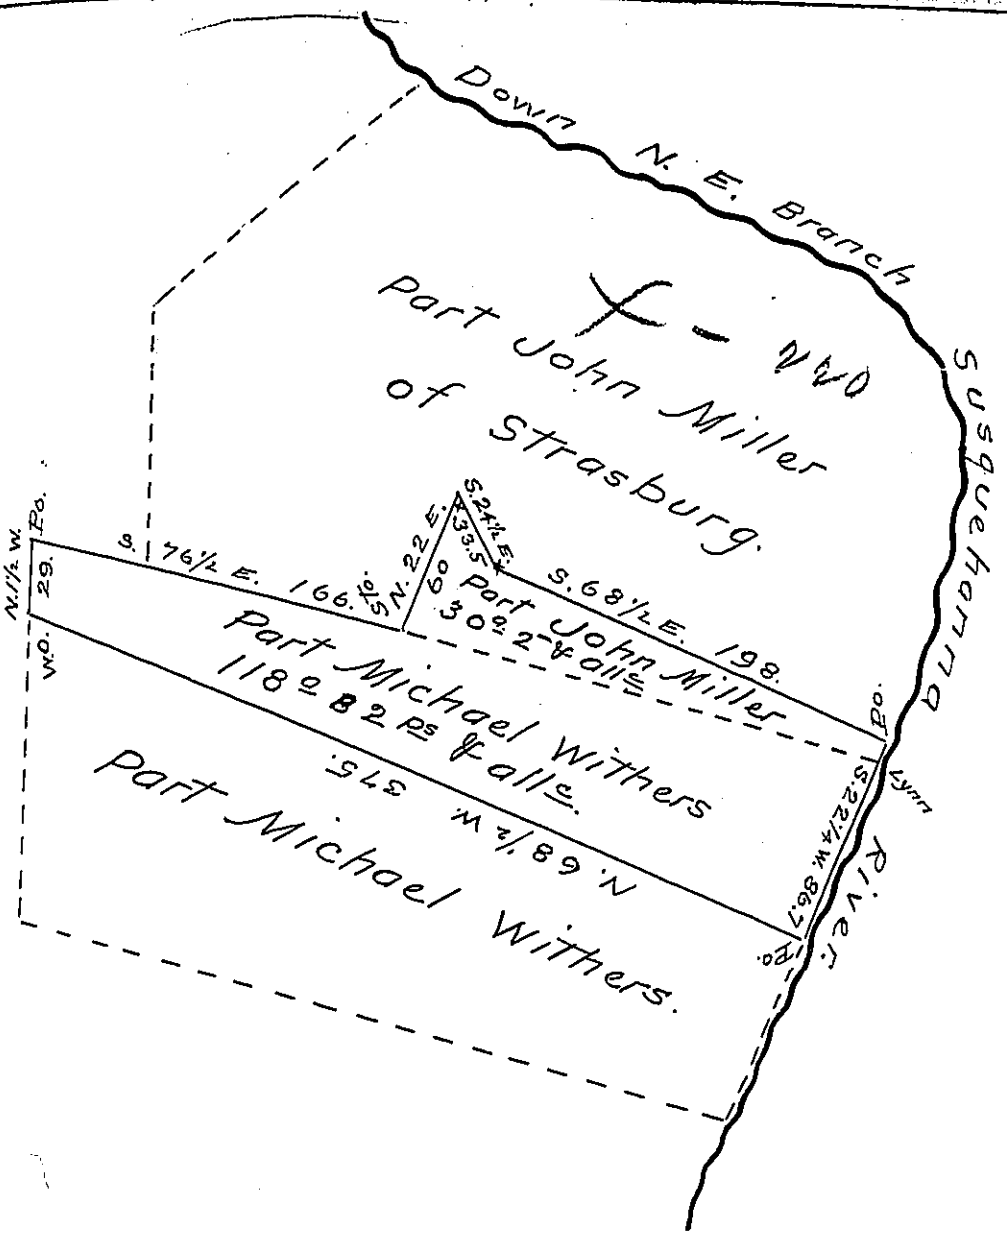 Down N. E. Branch
Susquehanna
River.
f - 220
Part John Miller
of Strasburg.
N. 1½ W.
29.
Po.
W.O.
S. 76½ E. 166.
Sto.
N. 22 E.
60
S. 24½ E.
33.5
S. 68½ E. 198.
Part John Miller
30a 2 & allc
Part Michael Withers
118a 82 ps & allc.
Po.
Lynn
S. 22¼ W. 86.7
Po.
N. 68½ W. 375.
Part Michael Withers.